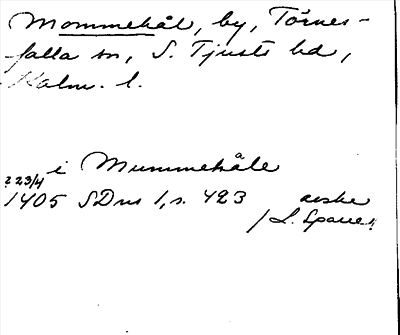 Mommehål, by, Törnes-
falla sn, S. Tjusts hd,
Kalm. l.
i Mummehåle
? 23/4
1405 SDns 1, s. 423 avskr
/L. Spare